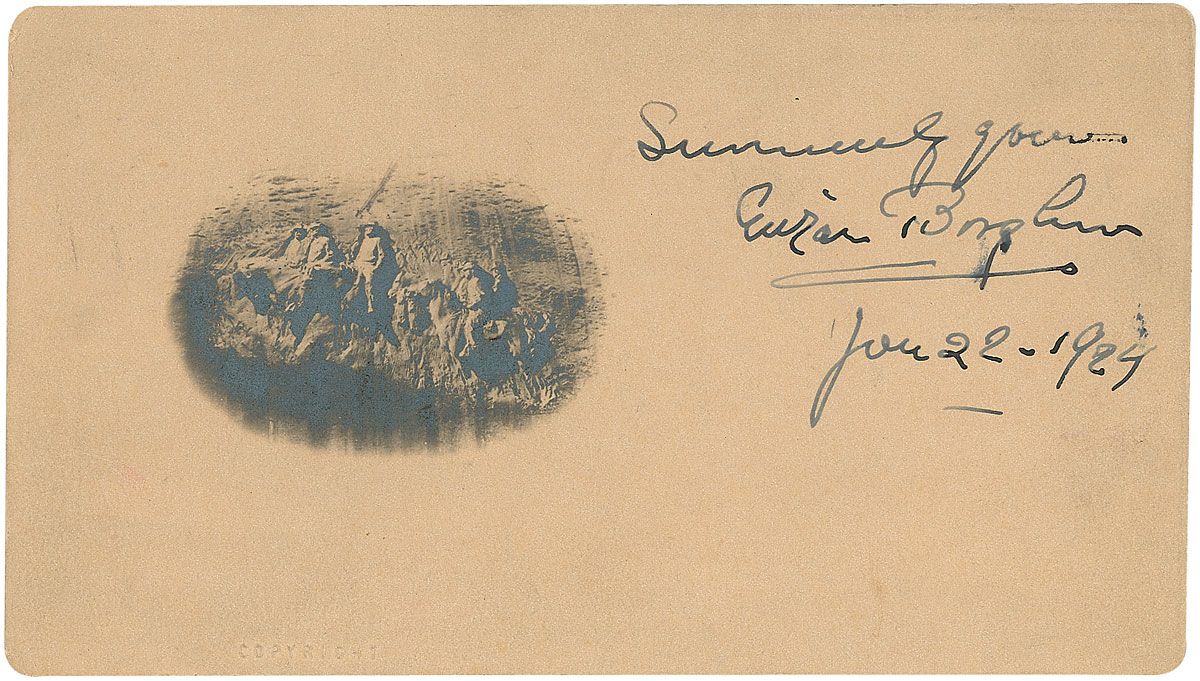 Sincerely yours
Gutzon Borglum
Jan 22 - 1924
COPYRIGHT